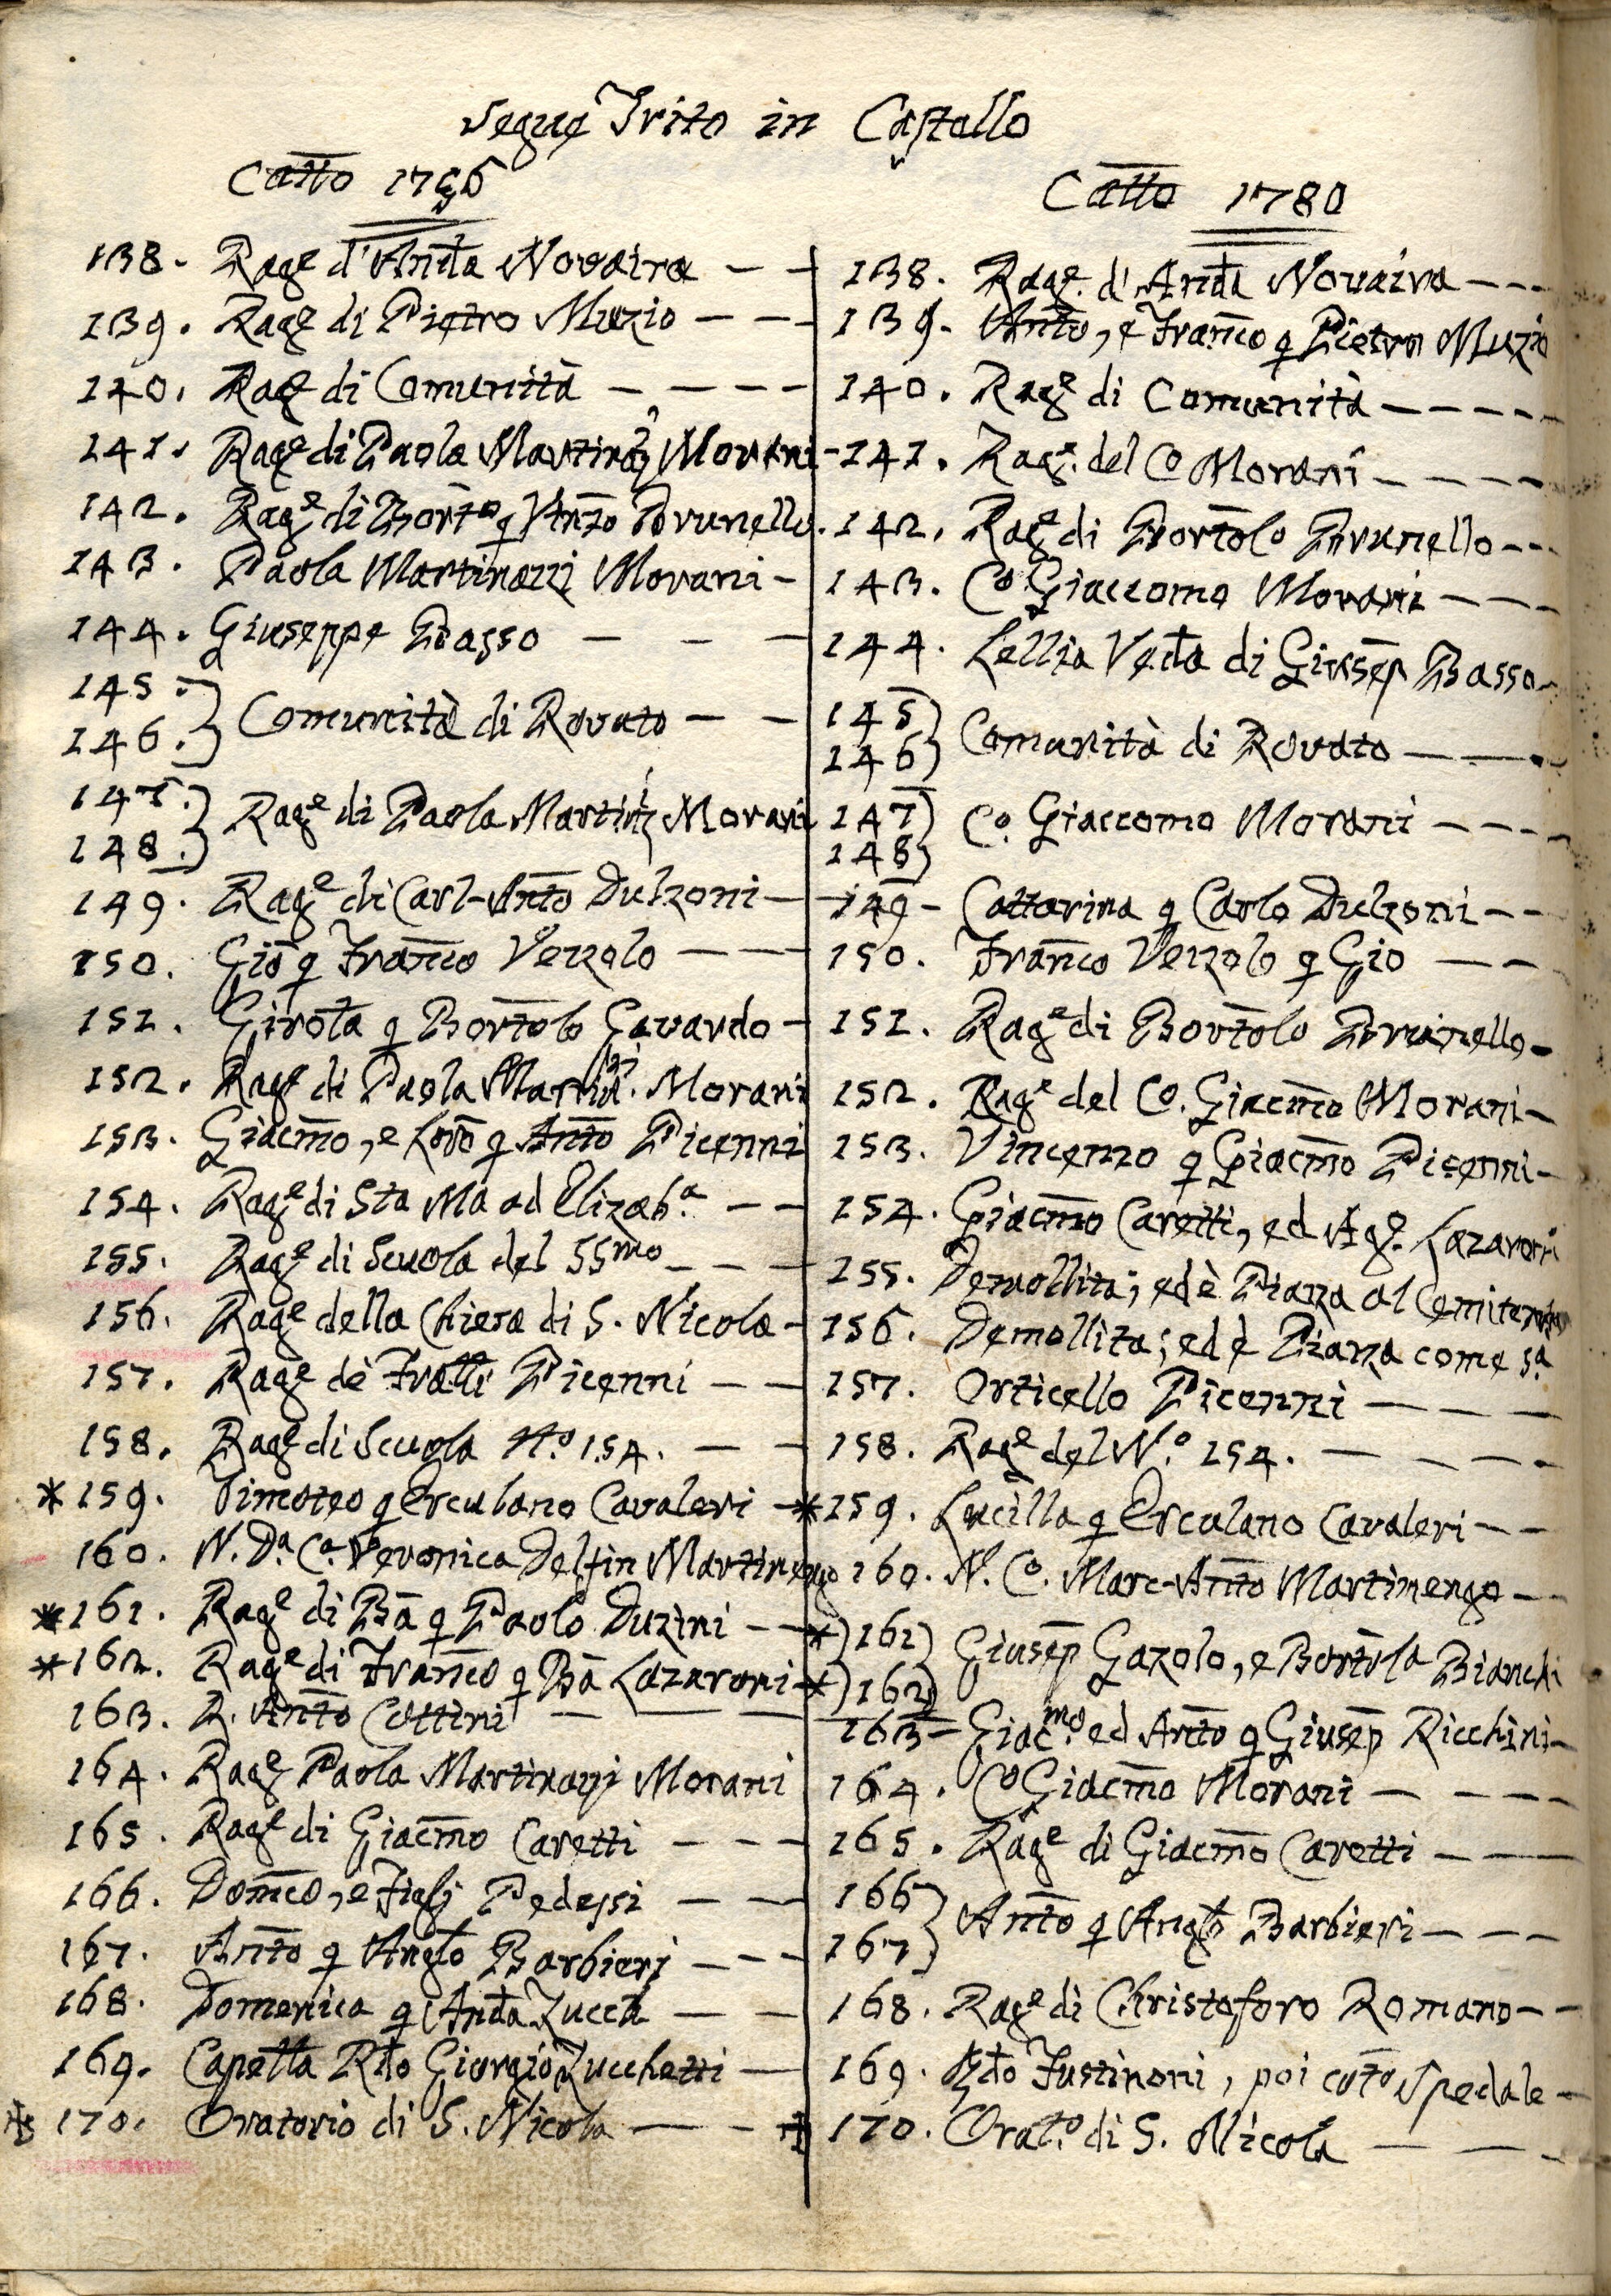 Segue Trito in Castello
Catto 1756
138. Rage d'Anda Novaira
139. Rage di Pietro Muzio
140. Rage di Comunità
141. Rage di Paola Martinzi Morani
142. Rage di Borto q Anto Brunello
143. Paola Martinazzi Morani
144. Giuseppe Basso
145.
146. Comunità di Rovato
147.
148. Rage di Paola Martinzi Morani
149. Rage di Carl-Anto Dulzoni
150. Gio q Franco Vezzolo
151. Girola q Bortolo Gavardo
152. Rage di Paola Martinzi Morani
153. Giacmo, e Loro q Anto Picenni
154. Rage di Sta Ma ad Elizaba
155. Rage di Scuola del SSmo
156. Rage della Chiesa di S. Nicola
157. Rage de Fratti Picenni
158. Rage di Scuola No. 154.
* 159. Timoteo q Erculano Cavaleri
160. N. Da. Ca. Veronica Delfin Martinengo
* 161. Rage di Ba q Paolo Duzini
* 162. Rage di Franco q Ba Lazaroni
163. R. Anto Cottini
164. Rage Paola Martinazzi Morani
165. Rage di Giacmo Caretti
166. Domco, e Figlj Pedersi
167. Anto q Anglo Barbieri
168. Domenica q Anda Zucchi
169. Capella Rdo Giorgio Zucchetti
170. Oratorio di S. Nicola
Catto 1780
138. Rage. d'Anda Novaira
139. Anto, e Franco q Pietro Muzio
140. Rage di Comunità
141. Rage. del Co Morani
142. Rage di Bortolo Brunello
143. Co Giaccomo Morani
144. Lellia Veda di Giusep Basso
145
146 Comunità di Rovato
147
148 Co. Giaccomo Morani
149 - Cattarina q Carlo Dulzoni
150. Franco Vezzolo q Gio
151. Rage di Bortolo Brunello
152. Rage del Co. Giacmo Morani
153. Vincenzo q Giacmo Picenni
154. Giacmo Caretti, ed Age. Lazaroni
155. Demollita; ed è Piazza al Cemiterio
156. Demollita; ed è Piazza come sa.
157. Orticello Picenni
158. Rage del No. 154.
* 159. Lucilla q Erculano Cavaleri
160. N. Co. Marc-Anto Martinengo
* 161
* 162 Giusep Gazolo, e Bortola Bianchi
163 - Giacmo. ed Anto q Giusep Ricchini
164. Co Giacmo Morani
165. Rage di Giacmo Caretti
166
167 Anto q Anglo Barbieri
168. Rage di Christoforo Romano
169. Rdo Fustinoni, poi coto Spedale
170. Orato. di S. Nicola